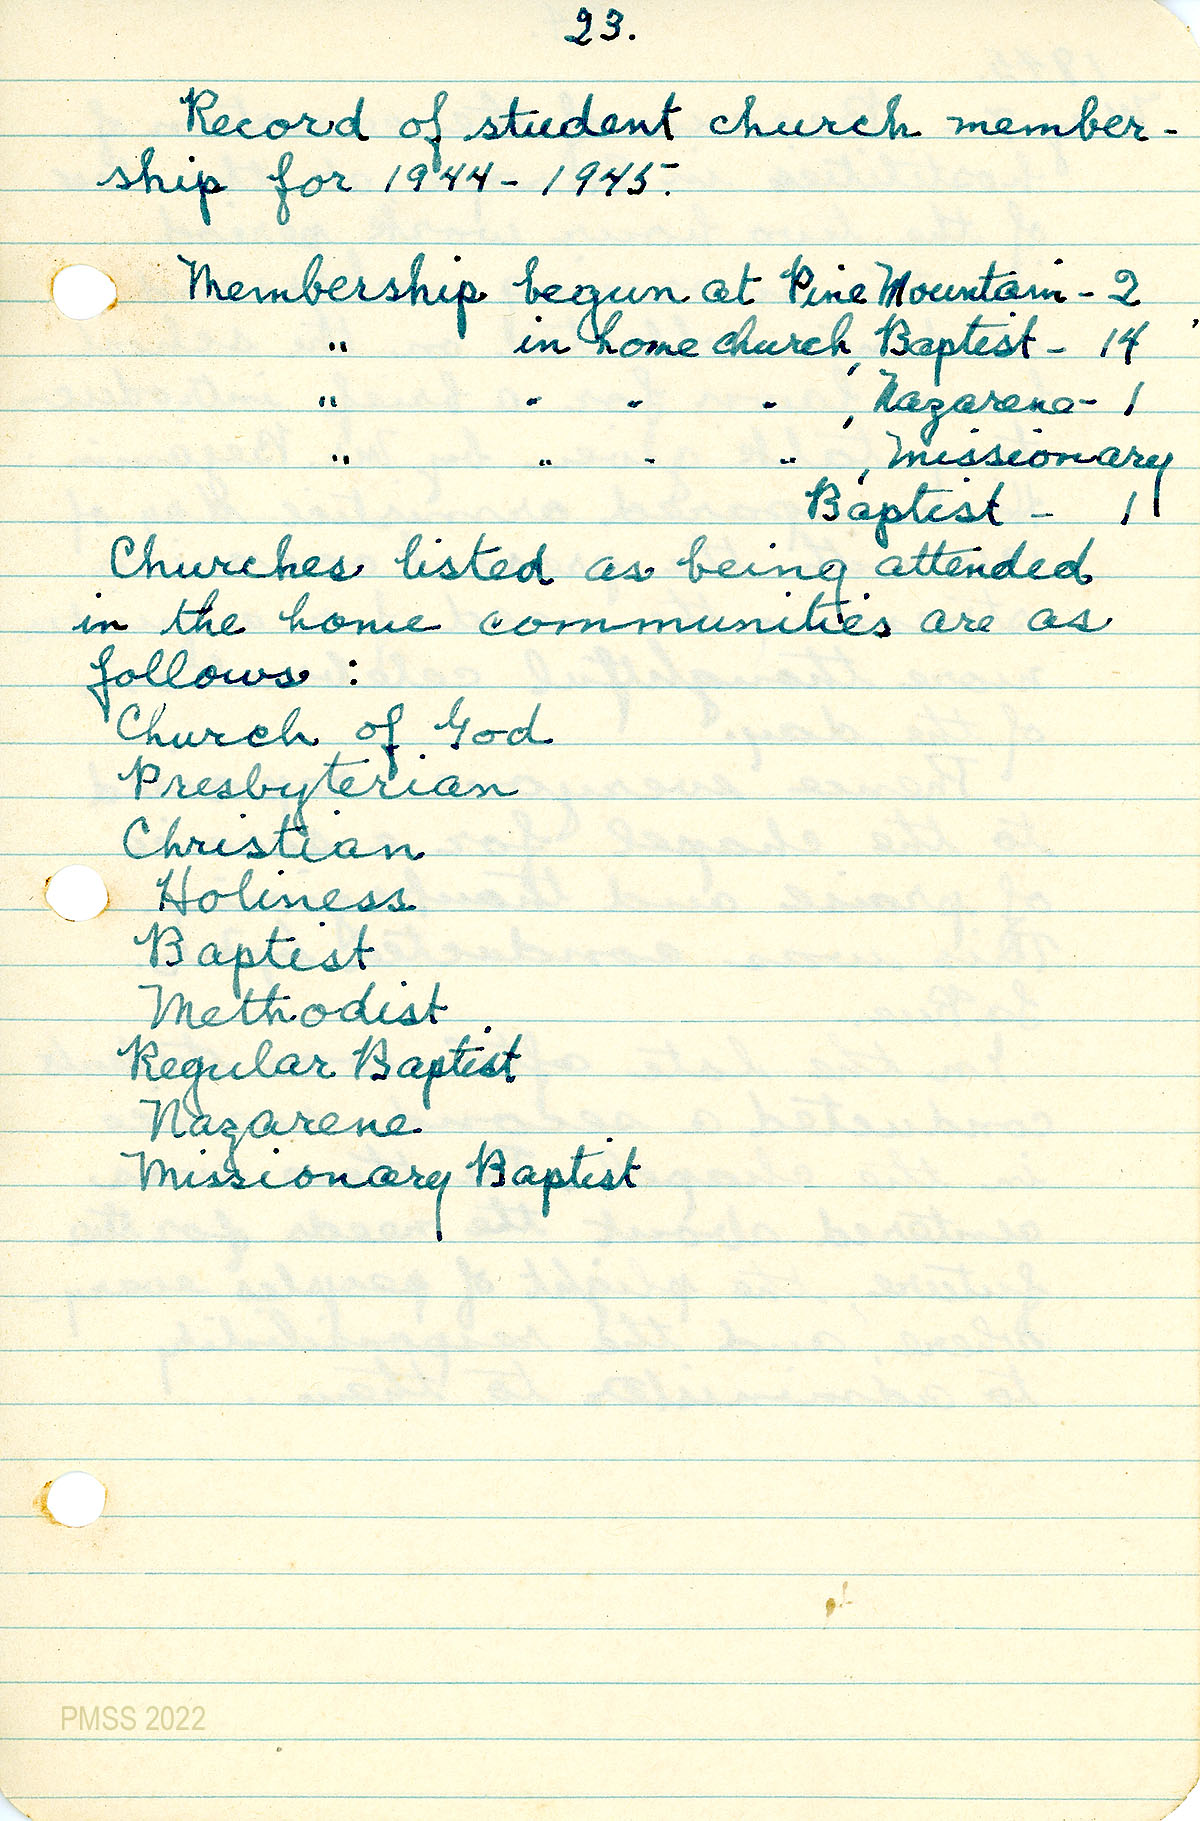 23.
Record of student church member-
ship for 1944-1945.
Membership begun at Pine Mountain - 2
" in home church, Baptist - 14
" " " " , Nazarene - 1
" " " " , Missionary
Baptist - 1
Churches listed as being attended
in the home communities are as
follows :
Church of God
Presbyterian
Christian
Holiness
Baptist
Methodist
Regular Baptist
Nazarene
Missionary Baptist
PMSS 2022